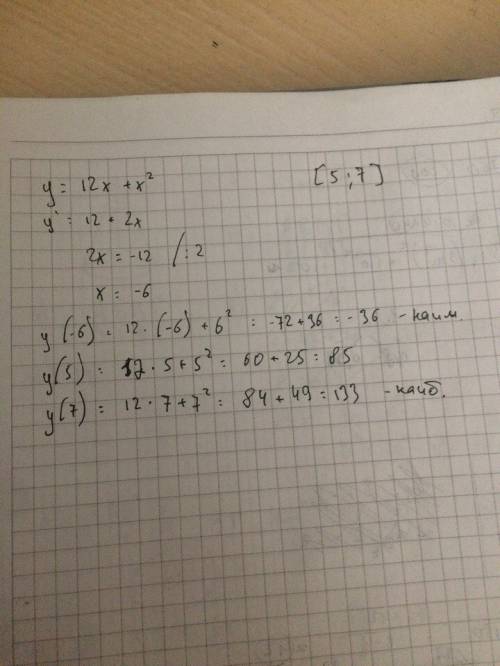 y = 12x + x² [5 ; 7]
y' = 12 + 2x
2x = -12 / : 2
x = -6
y (-6) = 12 · (-6) + 6² = -72 + 36 = -36 - наим.
y(5) = 12 · 5 + 5² = 60 + 25 = 85
y(7) = 12 · 7 + 7² = 84 + 49 = 133 - наиб.